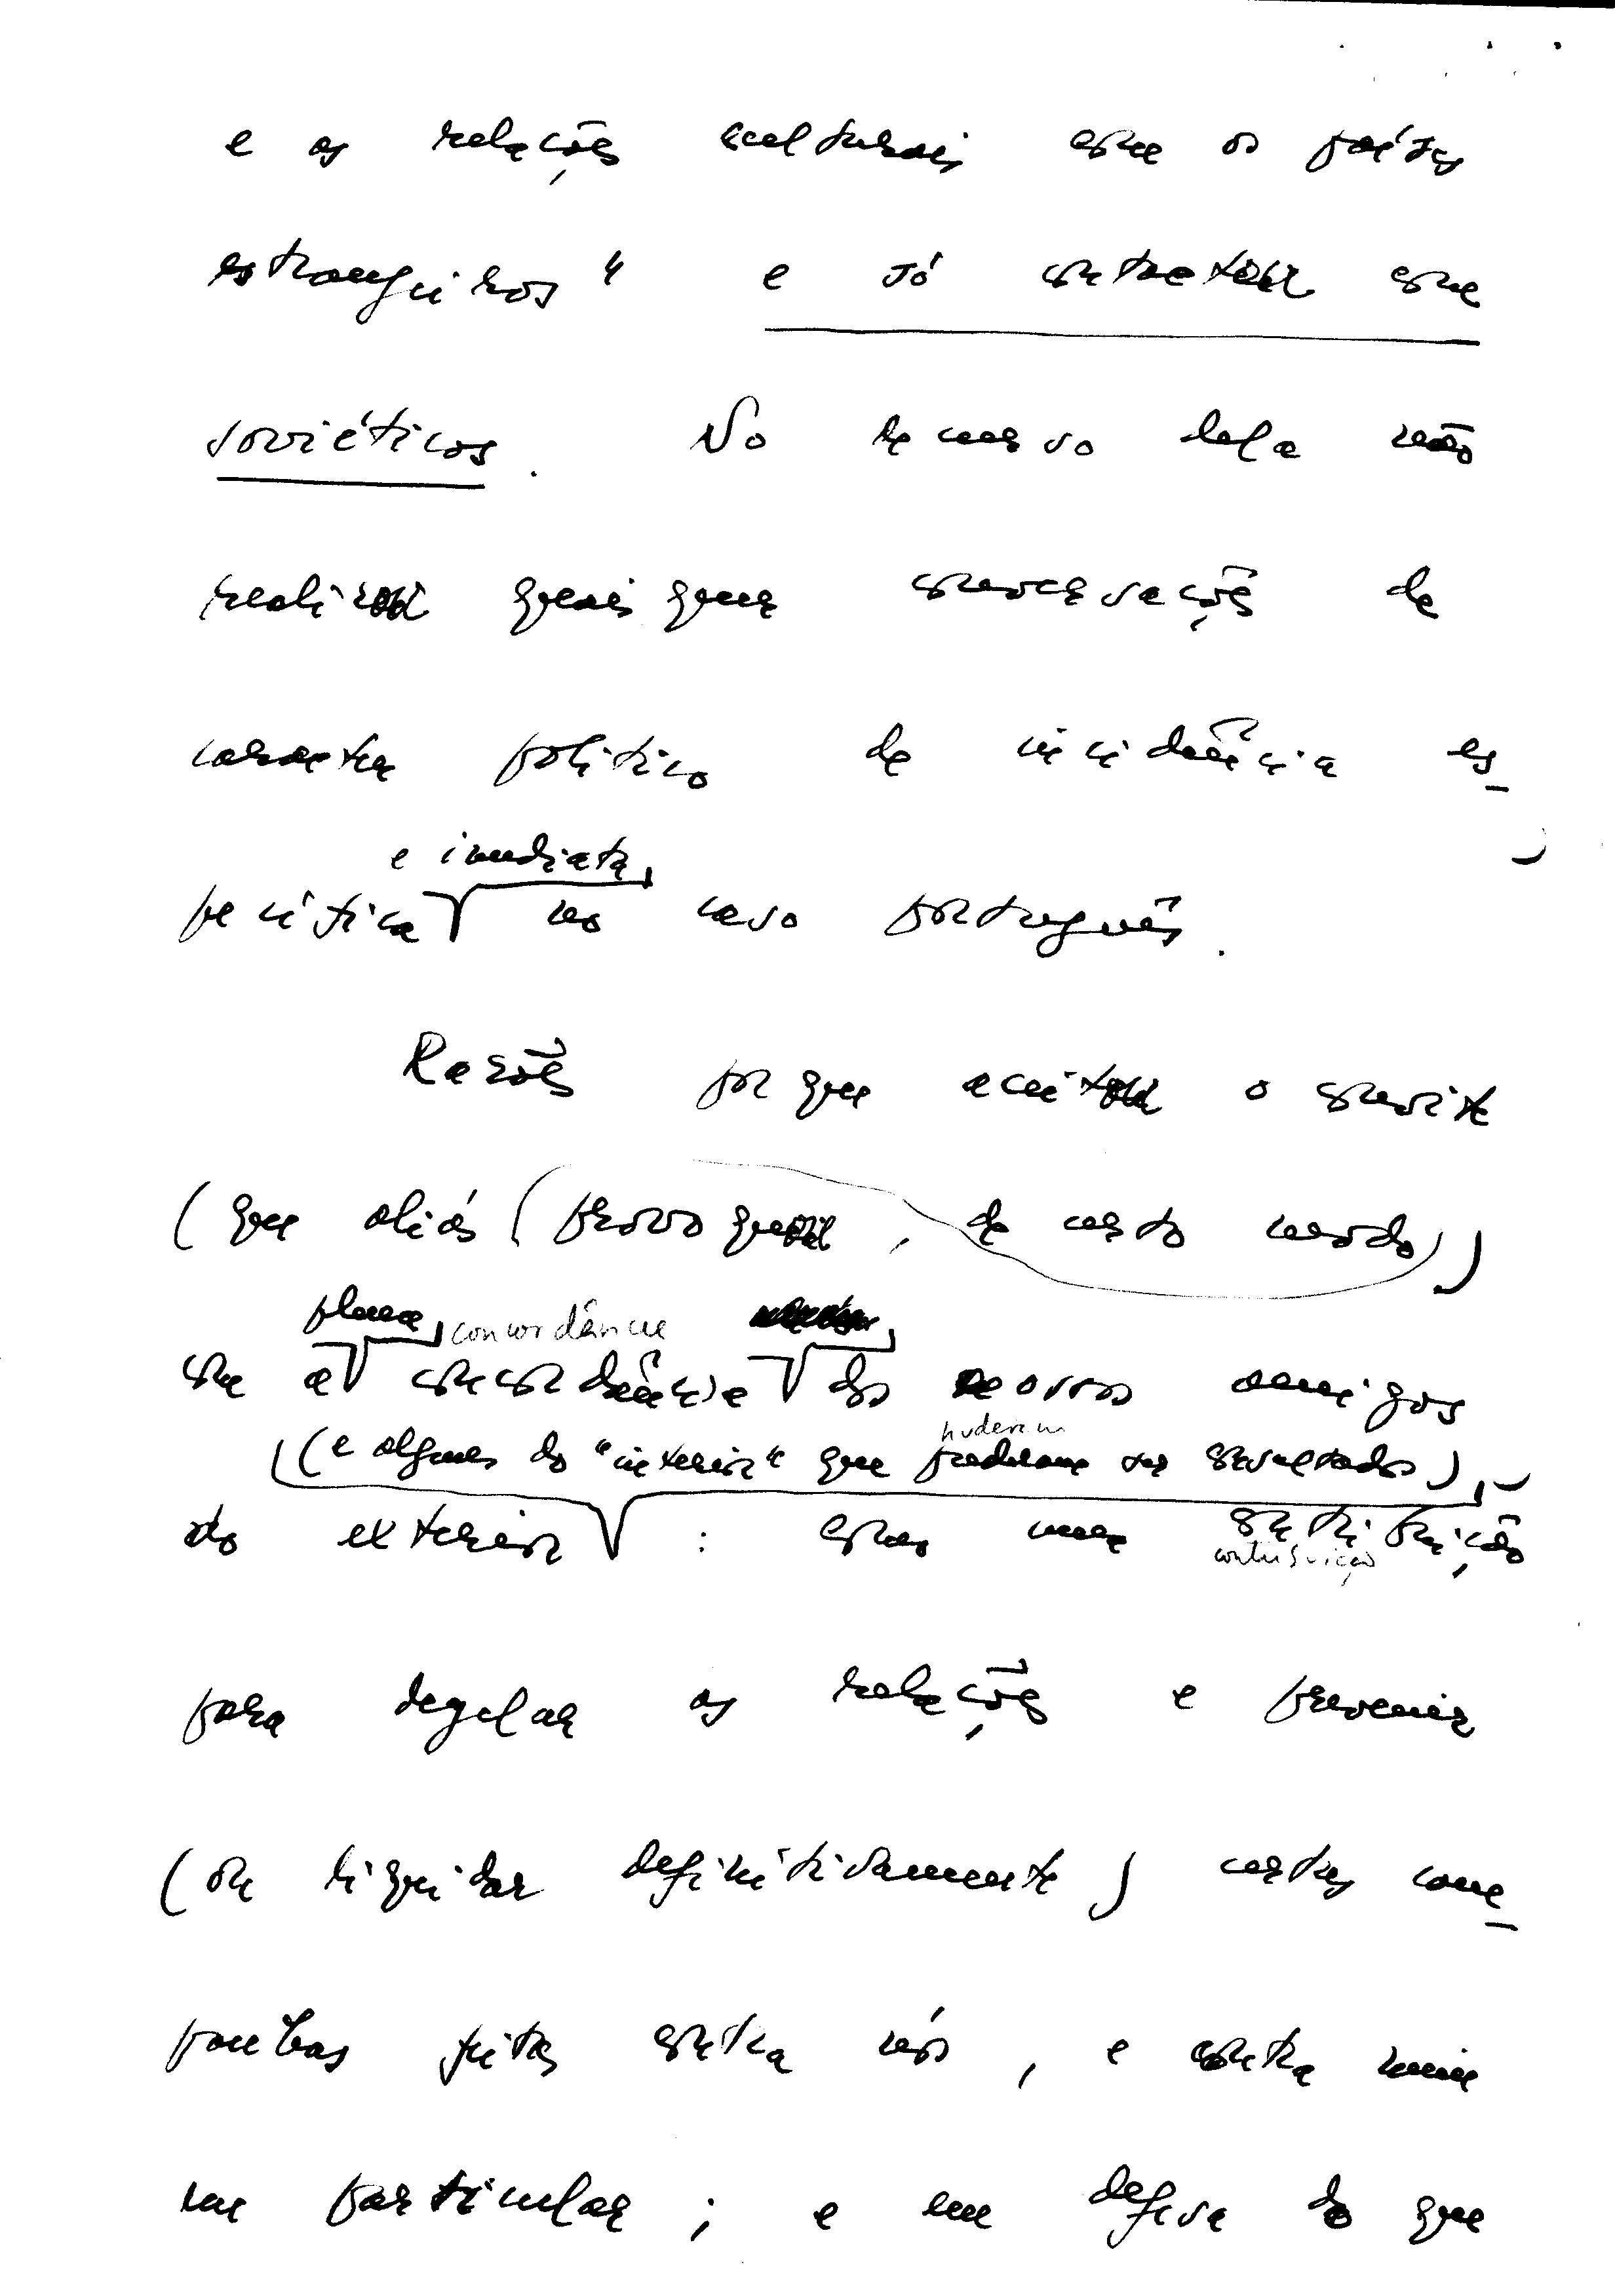 e as relações culturais com os países
estrangeiros" e só contactou com
soviéticos. No decurso dela não
realizou quaisquer conversações de
caracter politico de incidência es-
e imediata
pecífica no caso português.
Razões porque aceitou o convite
(que aliás (provoquei, de certo modo))
plena concordância
com a concordância dos nossos amigos
puderam
(e alguns do "interior" que puderam ser consultados)
do exterior : como uma contribuição
contribuição
para regular as relações e prevenir
(ou liquidar definitivamente) certas cam-
panhas feitas contra nós, e contra mim
em particular ; e em defesa do que